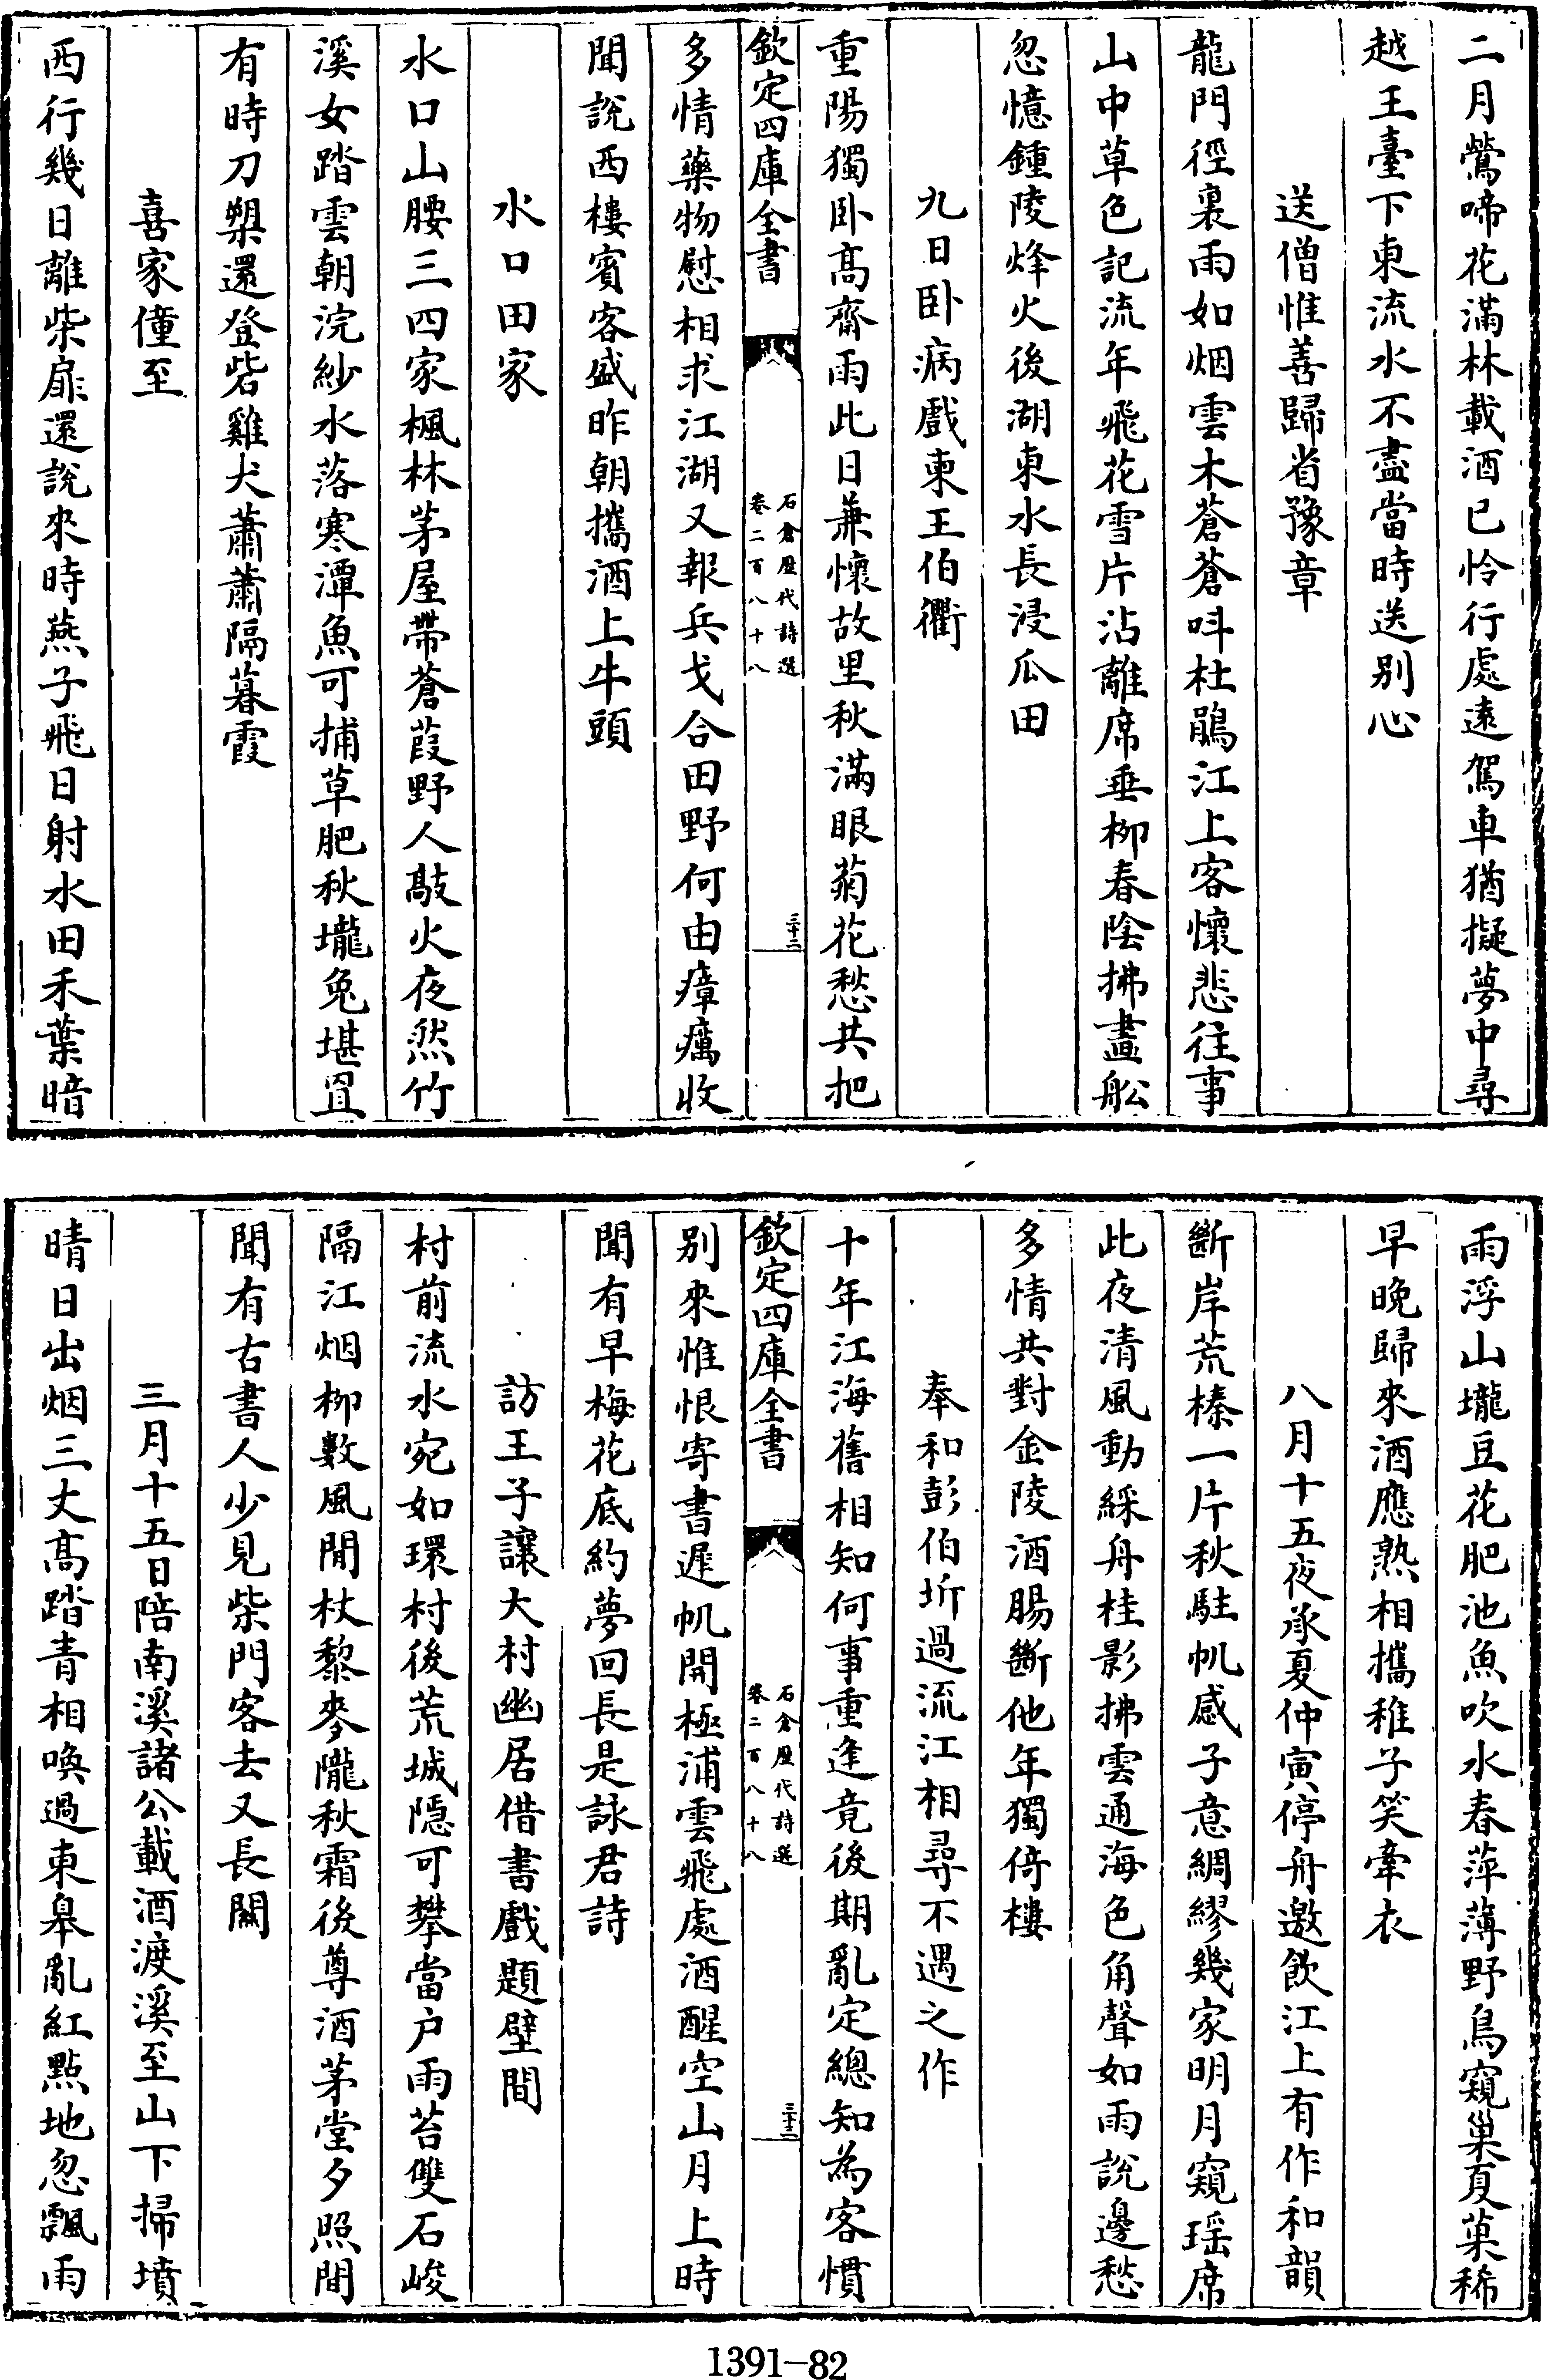 二月鶯啼花滿林載酒已怜行處遠駕車猶擬夢中尋
越王臺下東流水不盡當時送别心
送僧惟善歸省豫章
龍門徑裏雨如烟雲木蒼蒼呌杜鵑江上客懷悲往事
山中草色記流年飛花雪片沾離席垂柳春陰拂畫舩
忽憶鍾陵烽火後湖東水長浸瓜田
九日卧病戲柬王伯衢
重陽獨卧髙齋雨此日兼懷故里秋滿眼菊花愁共把
欽定四庫全書
石倉歷代詩選
卷二百八十八
三十二
多情藥物慰相求江湖又報兵戈合田野何由瘴癘收
聞説西樓賓客盛昨朝攜酒上牛頭
水口田家
水口山腰三四家楓林茅屋帶蒼葭野人敲火夜然竹
溪女踏雲朝浣紗水落寒潭魚可捕草肥秋壠兔堪罝
有時刀槊還登砦雞犬蕭蕭隔暮霞
喜家僮至
西行幾日離柴扉還説來時燕子飛日射水田禾葉暗
雨浮山壠豆花肥池魚吹水春萍薄野鳥窺巢夏菓稀
早晚歸來酒應熟相攜稚子笑牽衣
八月十五夜承夏仲寅停舟邀飲江上有作和韻
斷岸荒榛一片秋駐帆感子意綢繆幾家明月窺瑶席
此夜清風動綵舟桂影拂雲通海色角聲如雨説邊愁
多情共對金陵酒腸斷他年獨倚樓
奉和彭伯圻過流江相尋不遇之作
十年江海舊相知何事重逢竟後期亂定總知為客慣
欽定四庫全書
石倉歷代詩選
卷二百八十八
三十三
别來惟恨寄書遲帆開極浦雲飛處酒醒空山月上時
聞有早梅花底約夢回長是詠君詩
訪王子讓大村幽居借書戲題壁間
村前流水宛如環村後荒城隠可攀當户雨苔雙石峻
隔江烟柳數風閒杖黎麥隴秋霜後尊酒茅堂夕照間
聞有古書人少見柴門客去又長闗
三月十五日陪南溪諸公載酒渡溪至山下掃墳
晴日出烟三丈髙踏青相喚過東皋亂紅點地忽飄雨
1391—82